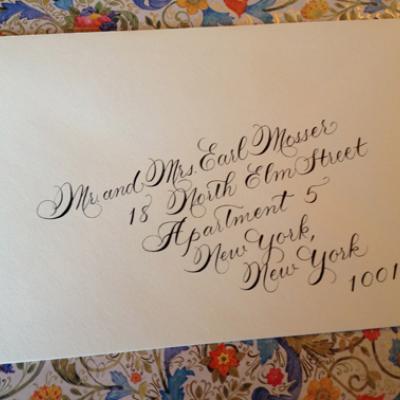 Mr. and Mrs. Earl Mosser
18 North Elm Street
Apartment 5
New York,
New York
1001